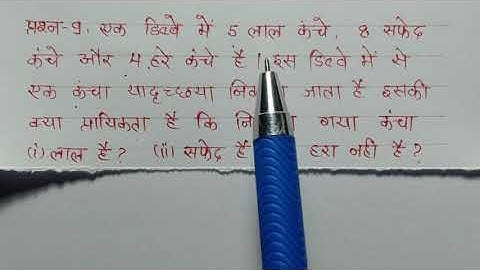 प्रश्न-9. एक डिब्बे में 5 लाल कंचे, 8 सफेद
कंचे और 4 हरे कंचे हैं। इस डिब्बे में से
एक कंचा यादृच्छया जाता है इसकी
क्या प्रायिकता है कि गया कंचा
(i) लाल है? (ii) सफेद है हरा नही है?